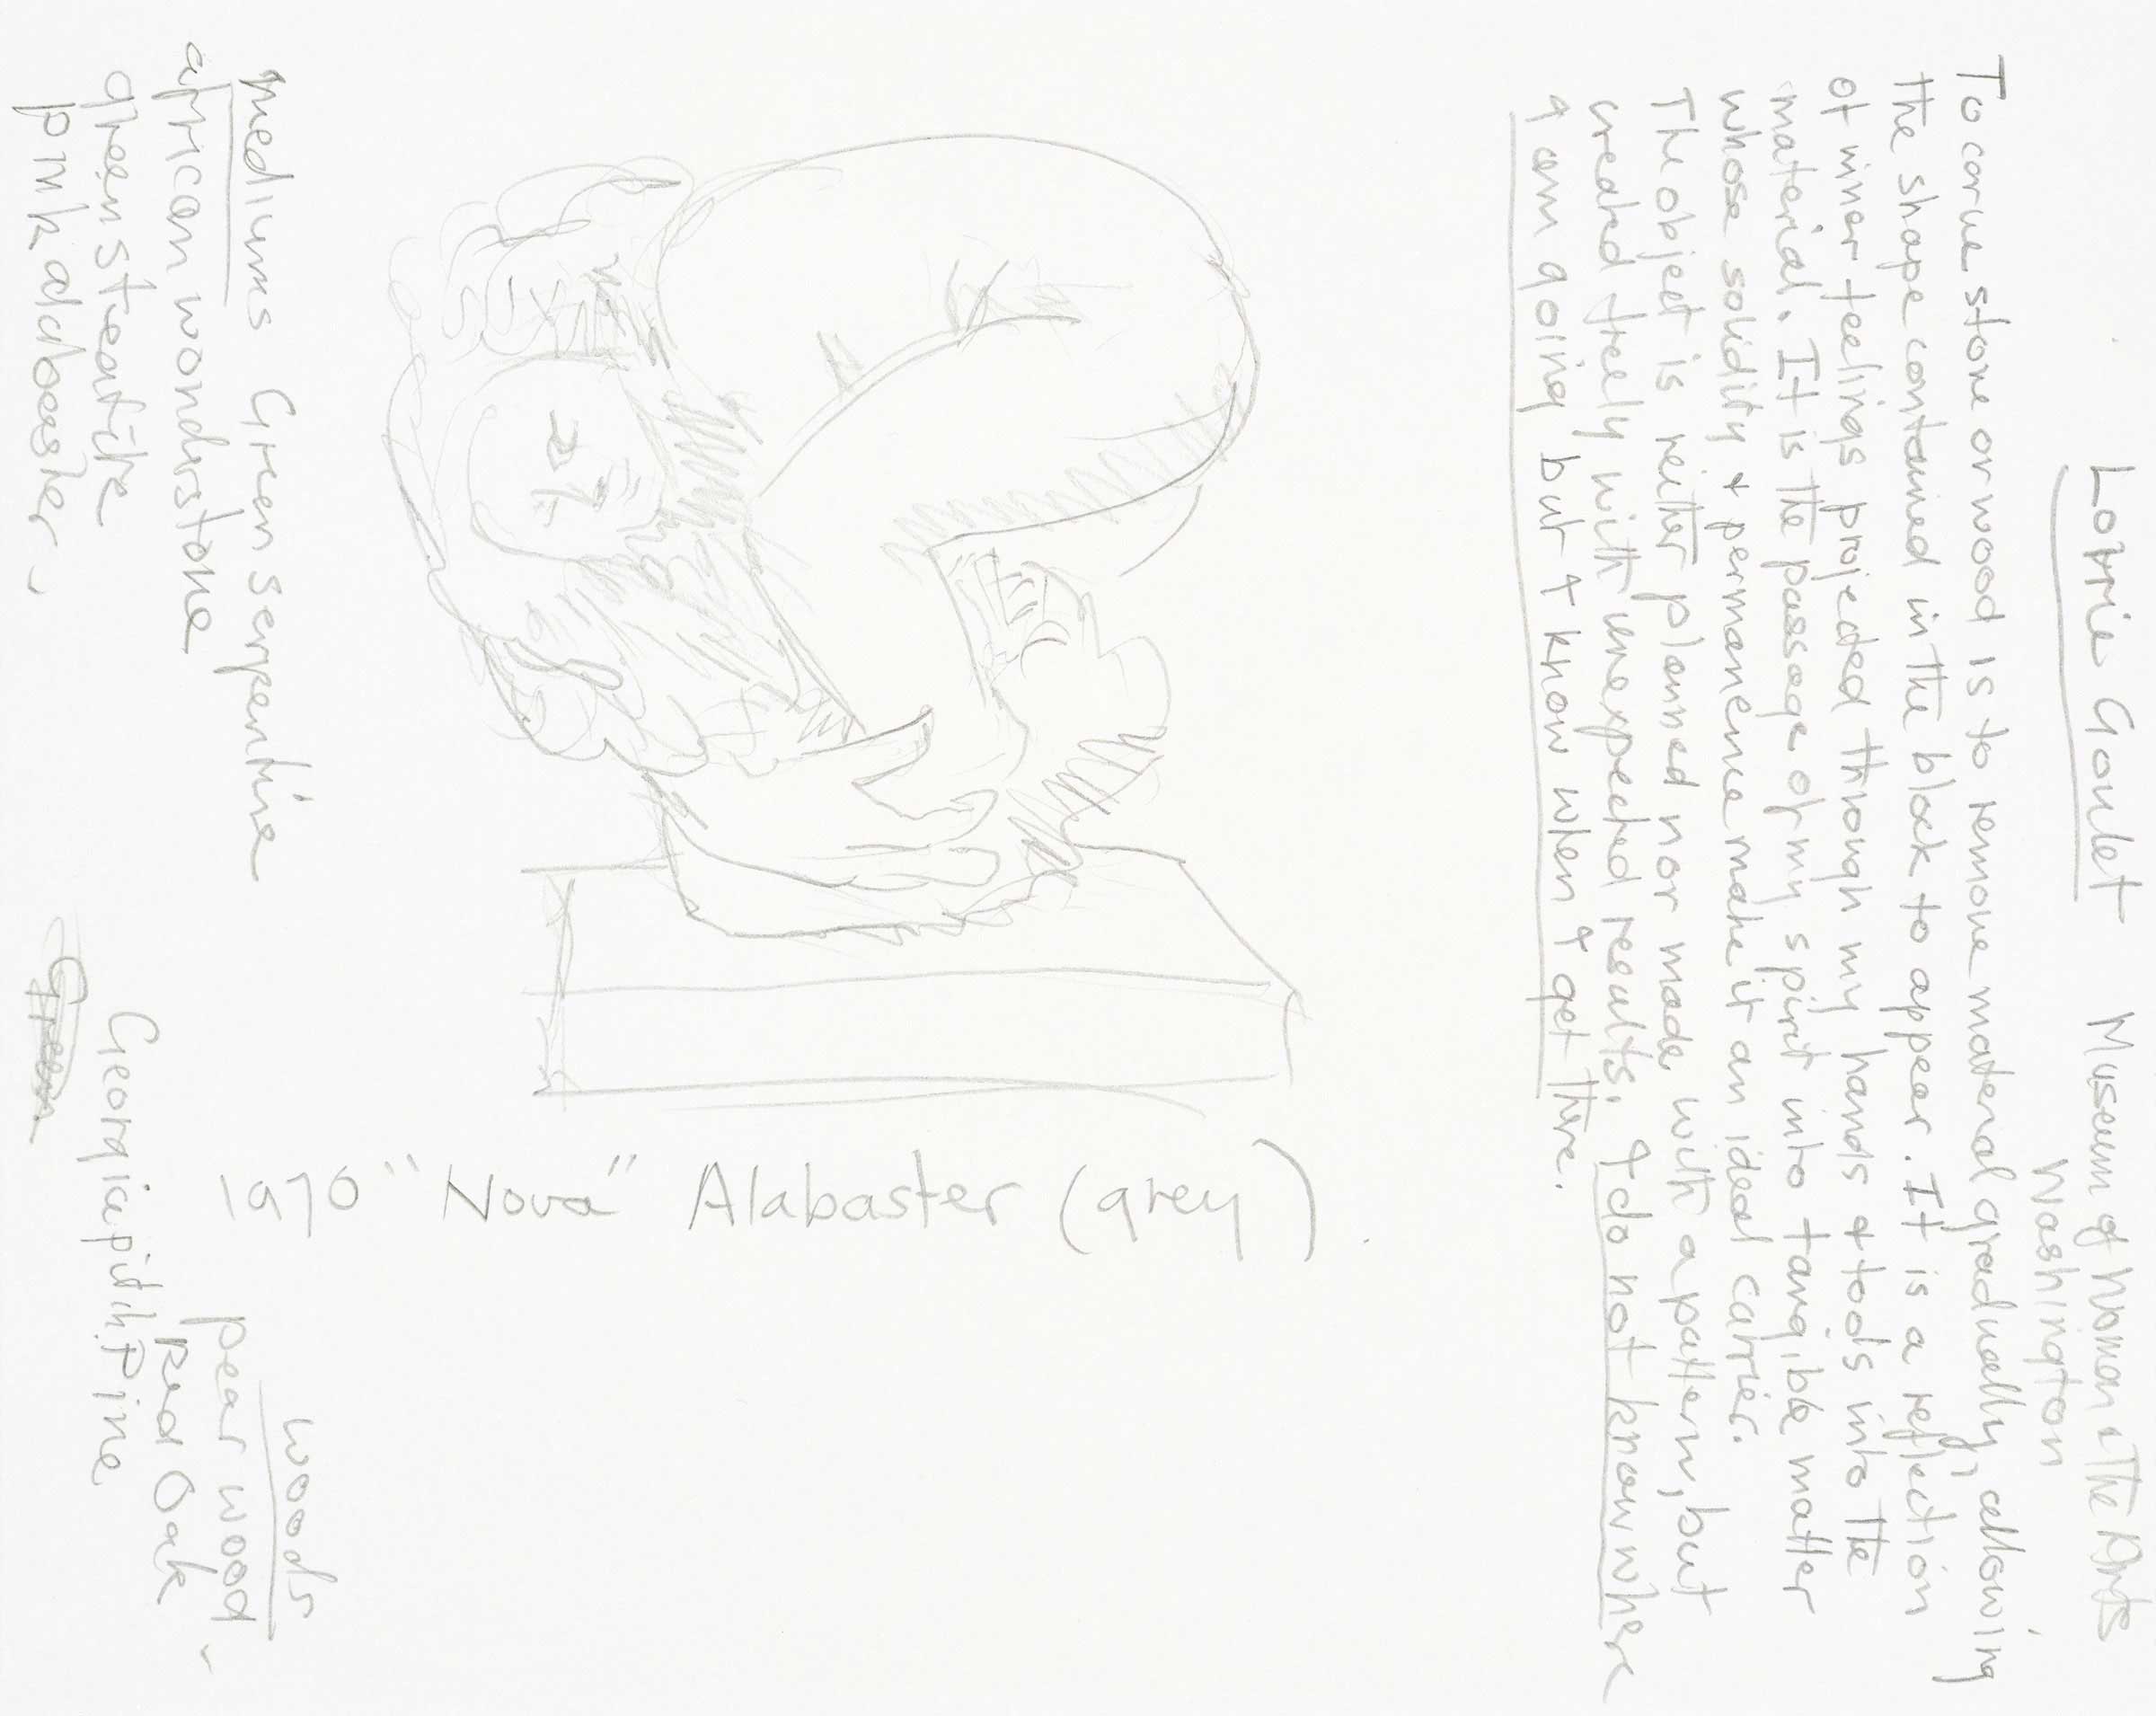 Lorrie Goulet Museum of Women & The Arts
Washington
To carve stone or wood is to remove material gradually, allowing
the shape contained in the block to appear. It is a reflection
of inner feelings projected through my hands & tools into the
material. It is the passage of my spirit into tangible matter
whose solidity & permanence make it an ideal carrier.
The object is neither planned nor made with a pattern, but
created freely with unexpected results. I do not know where
I am going but I know when I get there.
1970 "Nova" Alabaster (grey)
mediums Green serpentine
african wonderstone
green steatite
pink alabaster
woods
pear wood
Red Oak
Georgia pitch Pine
Green